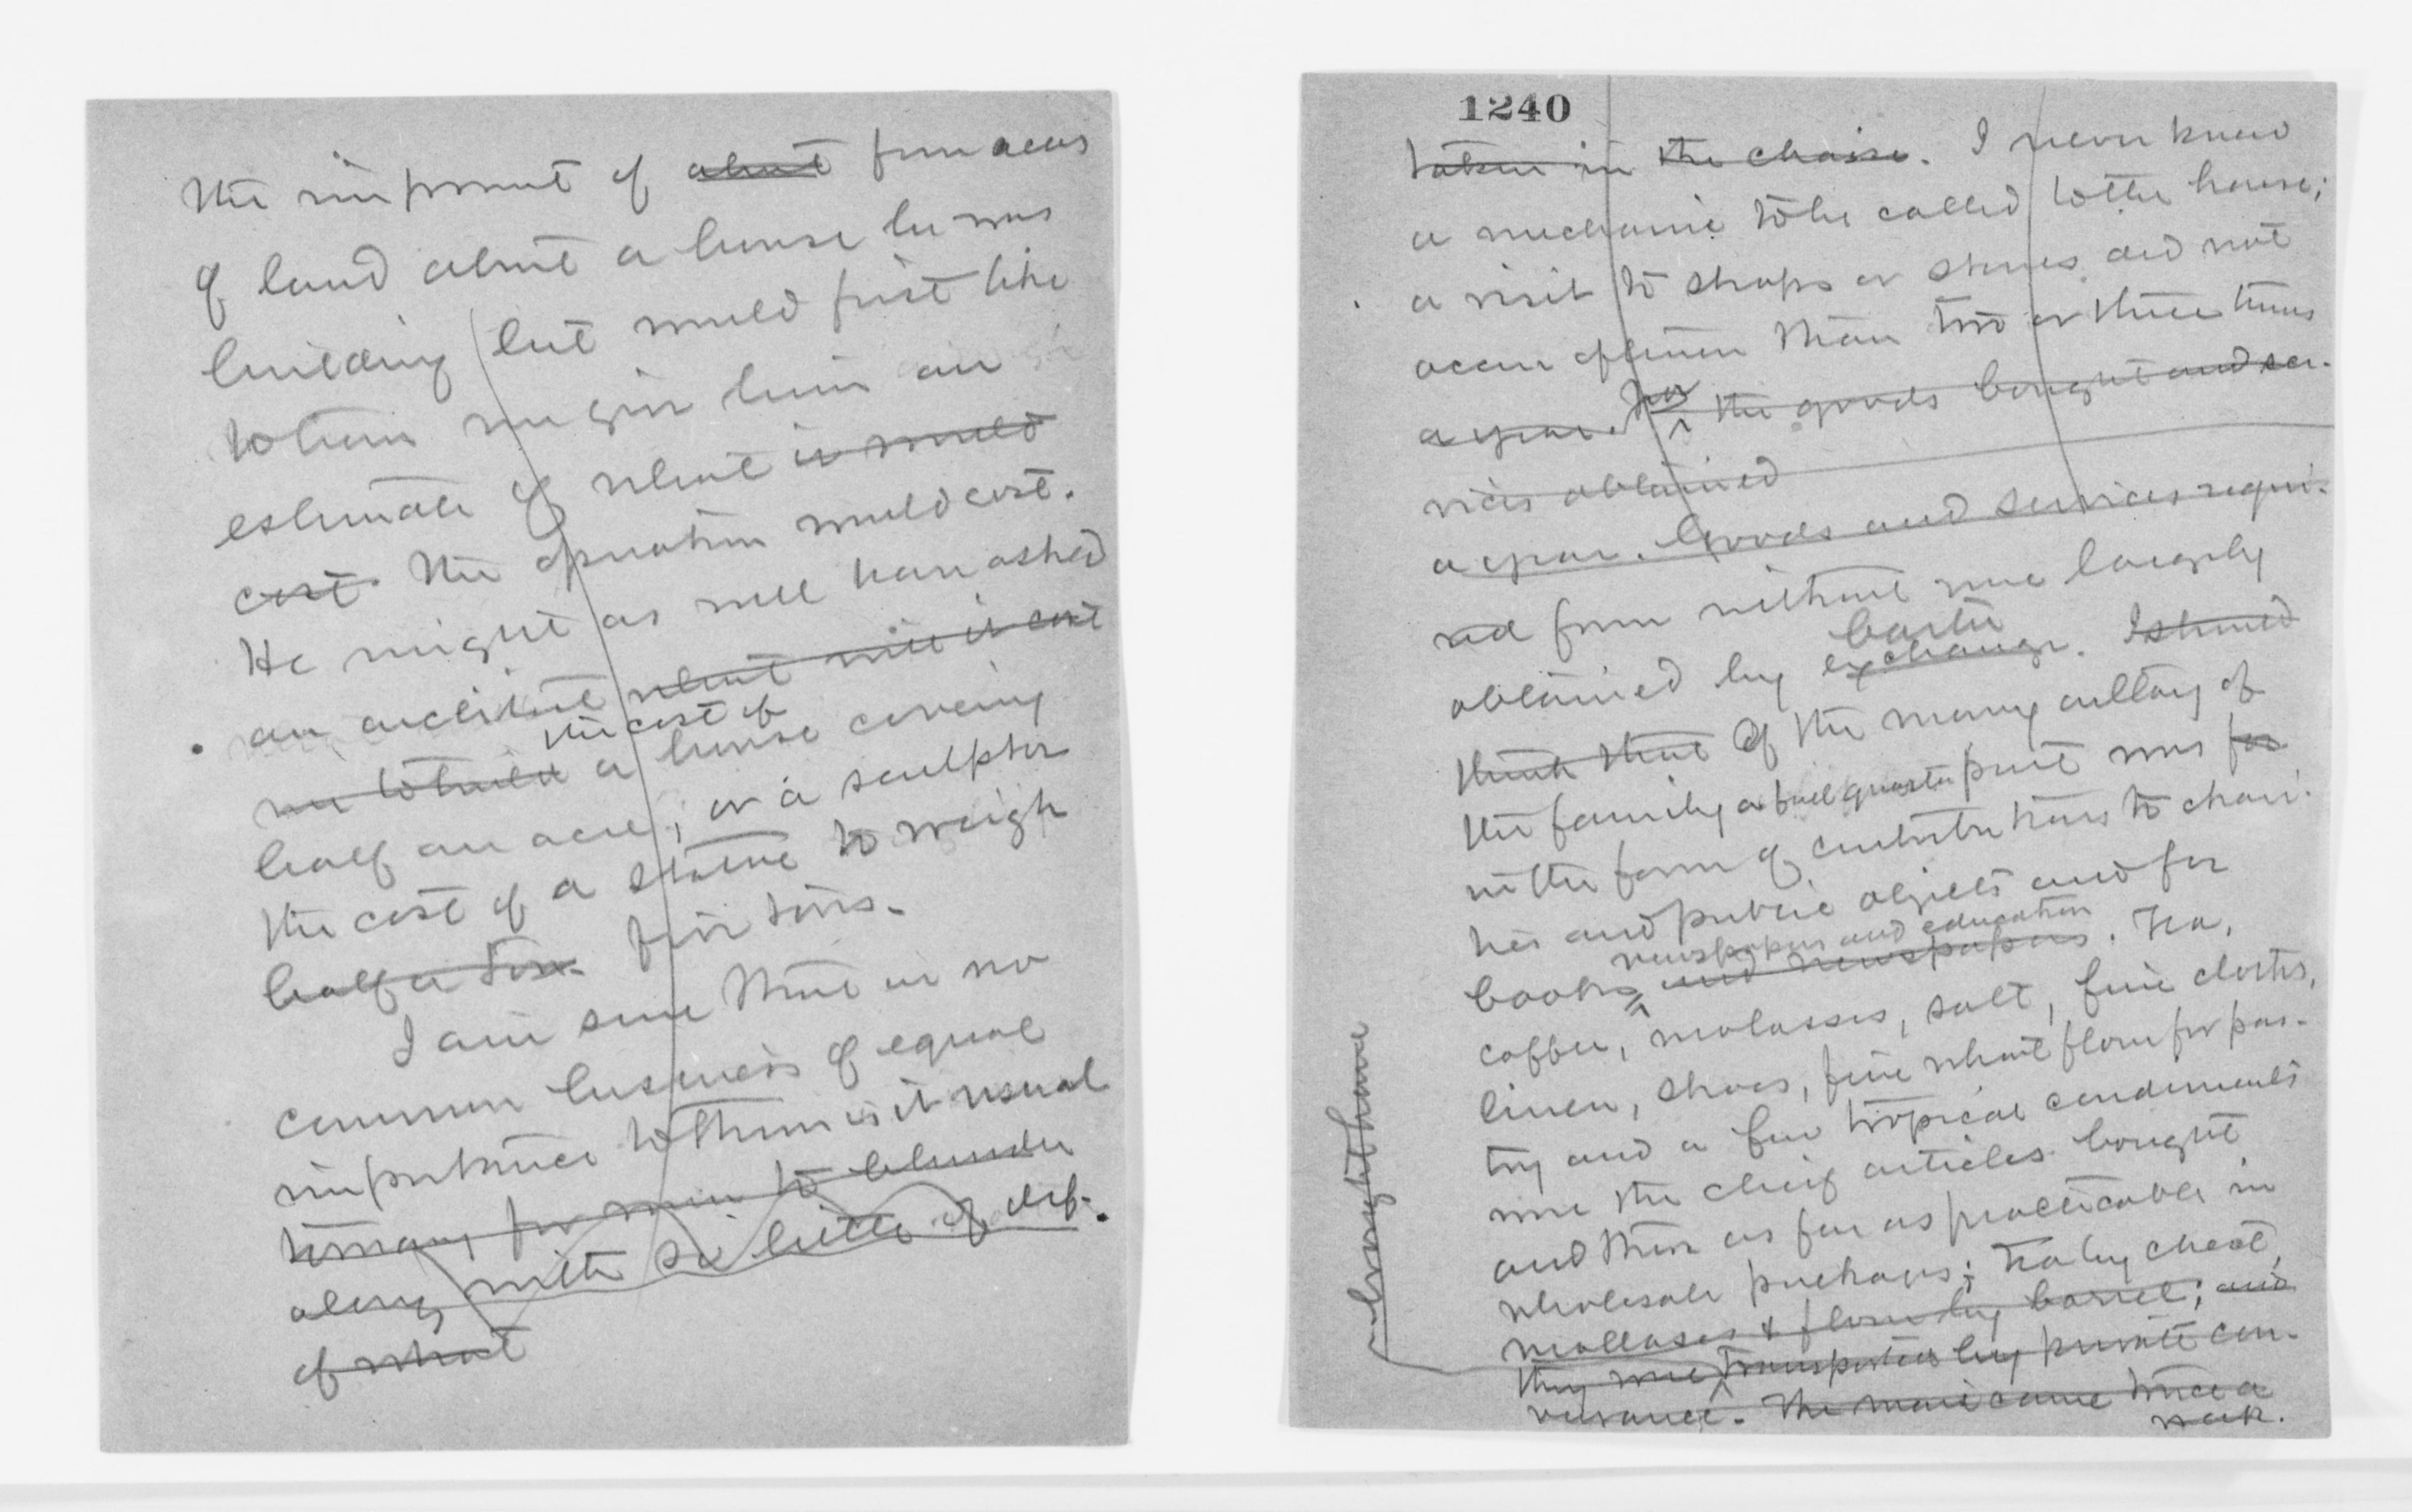 the improvement of about four acres
of land about a house he was
building but would first like
to have me give him an
estimate of what it would
cost. the operation would cost.
He might as well have asked
an architect what will it cost
me to build the cost of a house covering
half an acre; or a sculptor
the cost of a statue to weigh
half a ton. five tons.
I am sure that in no
common business of equal
importance to them is it usual
for men to blunder
along with so little of def-
of what
1240
taken in the chaise. I never knew
a mechanic to be called to the house;
a visit to shops or stores did not
occur oftener than two or three times
a year. the goods bought and ser-
vices obtained
a year. Goods and services requi-
red from without were largely
obtained by exchange barter. I should
think that Of the money outlay of
the family a full quarter part was for
in the form of contributions to chari-
ties and public objects and for
books newspapers and education and newspapers. Tea,
coffee, molasses, salt, fine cloths,
linen, shoes, fine wheat flour for pas-
try and a few tropical condiments
were the chief articles bought
and these as far as practicable in
wholesale purchases; tea by chest,
mollases & flour by barrel; and
they were transported by private con-
veyance. The mail came twice a
week.
brought home